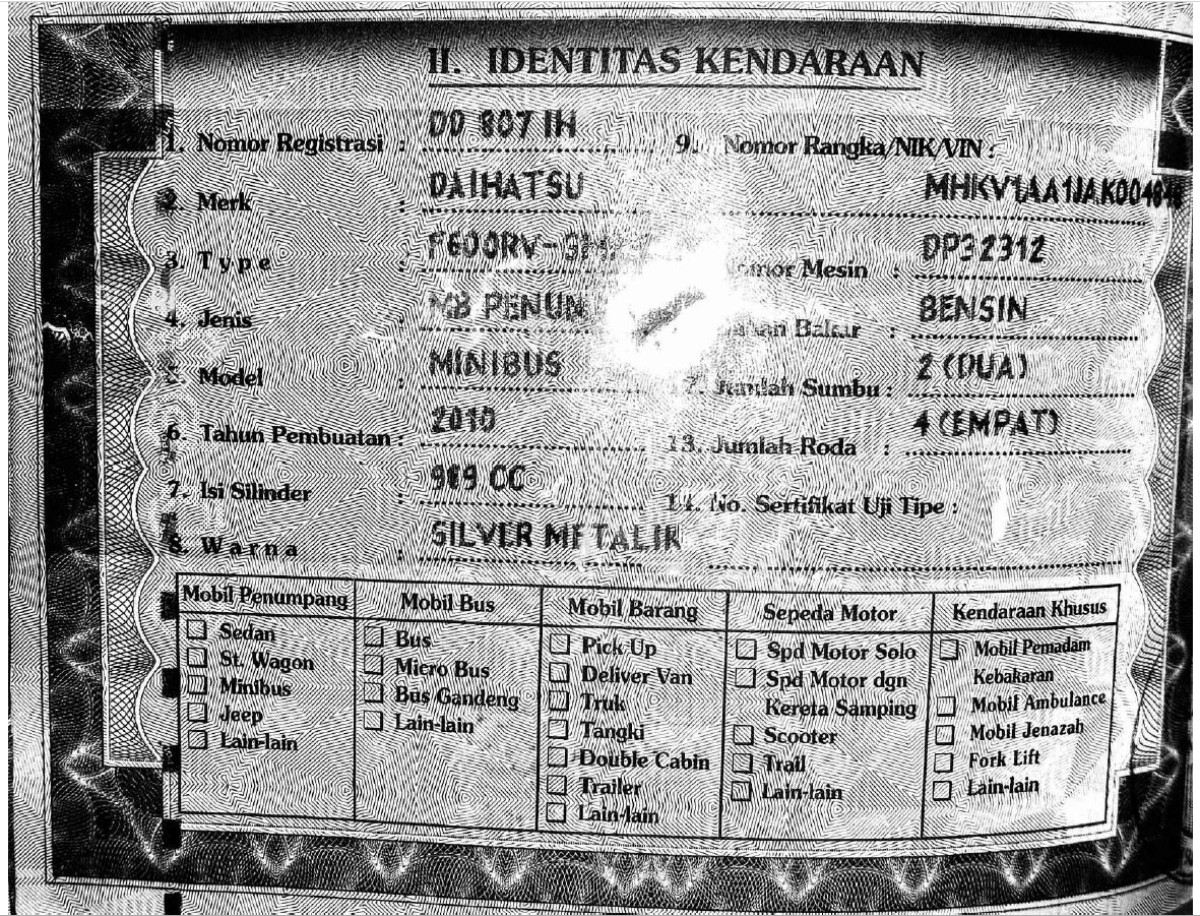 II. IDENTITAS KENDARAAN
1. Nomor Registrasi : DD 807 IH
2. Merk : DAIHATSU
3. Type : F600RV-
4. Jenis : MB PENUN
5. Model : MINIBUS
6. Tahun Pembuatan : 2010
7. Isi Silinder : 989 CC
8. Warna : SILVER METALIK
9. Nomor Rangka/NIK/VIN :
Nomor Mesin : DP32312
Bahan Bakar : BENSIN
Jumlah Sumbu : 2 (DUA)
13. Jumlah Roda : 4 (EMPAT)
14. No. Sertifikat Uji Tipe :
Mobil Penumpang
Sedan
St. Wagon
Minibus
Jeep
Lain-lain
Mobil Bus
Bus
Micro Bus
Bus Gandeng
Lain-lain
Mobil Barang
Pick Up
Deliver Van
Truk
Tangki
Double Cabin
Trailer
Lain-lain
Sepeda Motor
Spd Motor Solo
Spd Motor dgn
Kereta Samping
Scooter
Trail
Lain-lain
Kendaraan Khusus
Mobil Pemadam
Kebakaran
Mobil Ambulance
Mobil Jenazah
Fork Lift
Lain-lain